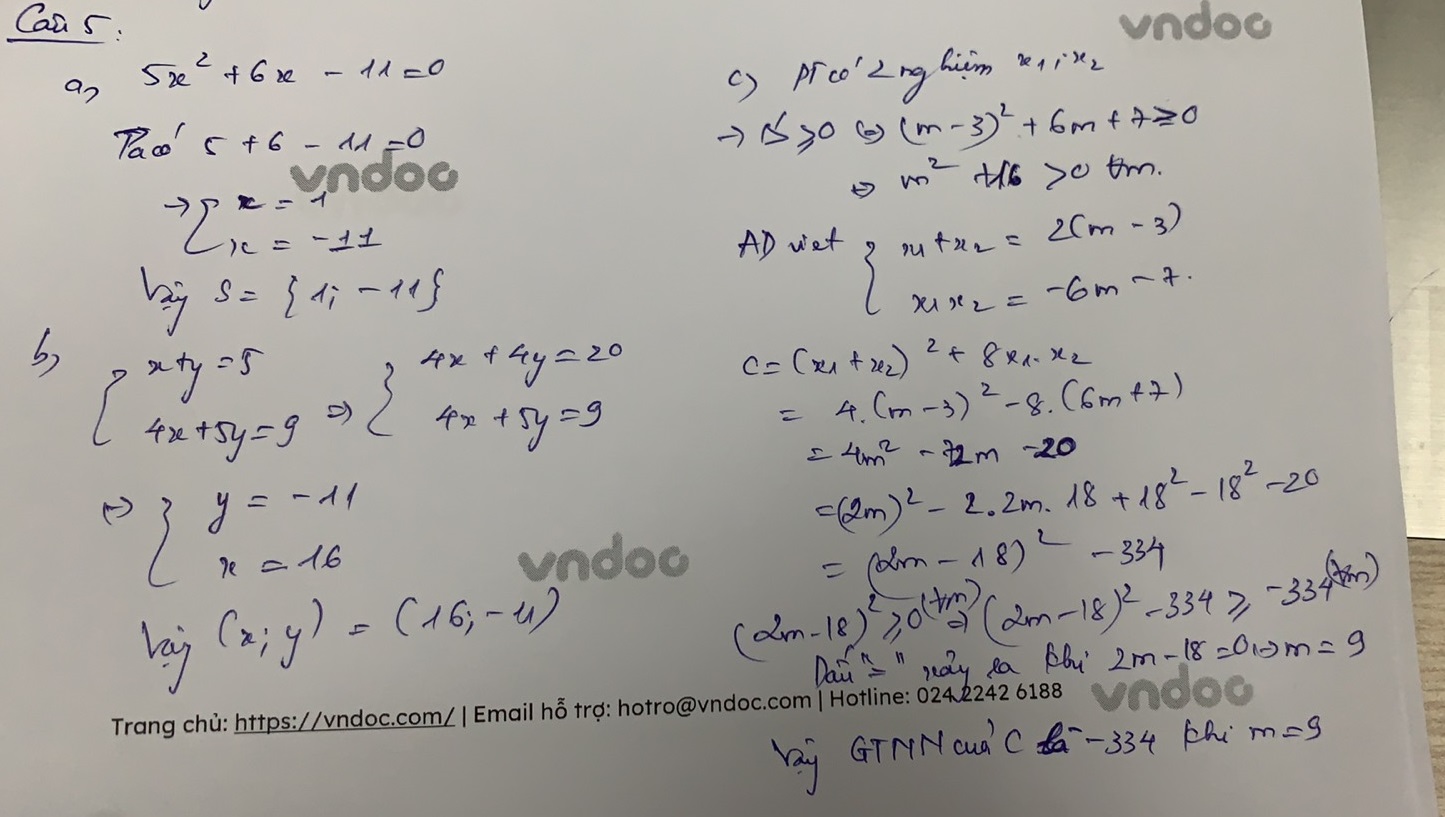 Câu 5:
a, 5x² + 6x - 11 = 0
Ta có 5 + 6 - 11 = 0
→ { x = 1
x = -11
Vậy S = {1; -11}
b, { x + y = 5
4x + 5y = 9
⇒ { 4x + 4y = 20
4x + 5y = 9
⇔ { y = -11
x = 16
Vậy (x; y) = (16; -11)
vndoc
vndoc
c, PT có 2 nghiệm x₁; x₂
→ Δ' ≥ 0 ⇔ (m - 3)² + 6m + 7 ≥ 0
⇔ m² + 16 > 0 tm.
AD viet { x₁ + x₂ = 2(m - 3)
x₁x₂ = -6m - 7.
C = (x₁ + x₂)² + 8x₁.x₂
= 4.(m - 3)² - 8.(6m + 7)
= 4m² - 72m - 20
= (2m)² - 2.2m.18 + 18² - 18² - 20
= (2m - 18)² - 334
(2m - 18)² ≥ 0 (∀m) ⇒ (2m - 18)² - 334 ≥ -334 (∀m)
Dấu "=" xảy ra khi 2m - 18 = 0 ⇔ m = 9
Vậy GTNN của C là -334 khi m = 9
vndoc
vndoc
Trang chủ: https://vndoc.com/ | Email hỗ trợ: hotro@vndoc.com | Hotline: 024.2242 6188